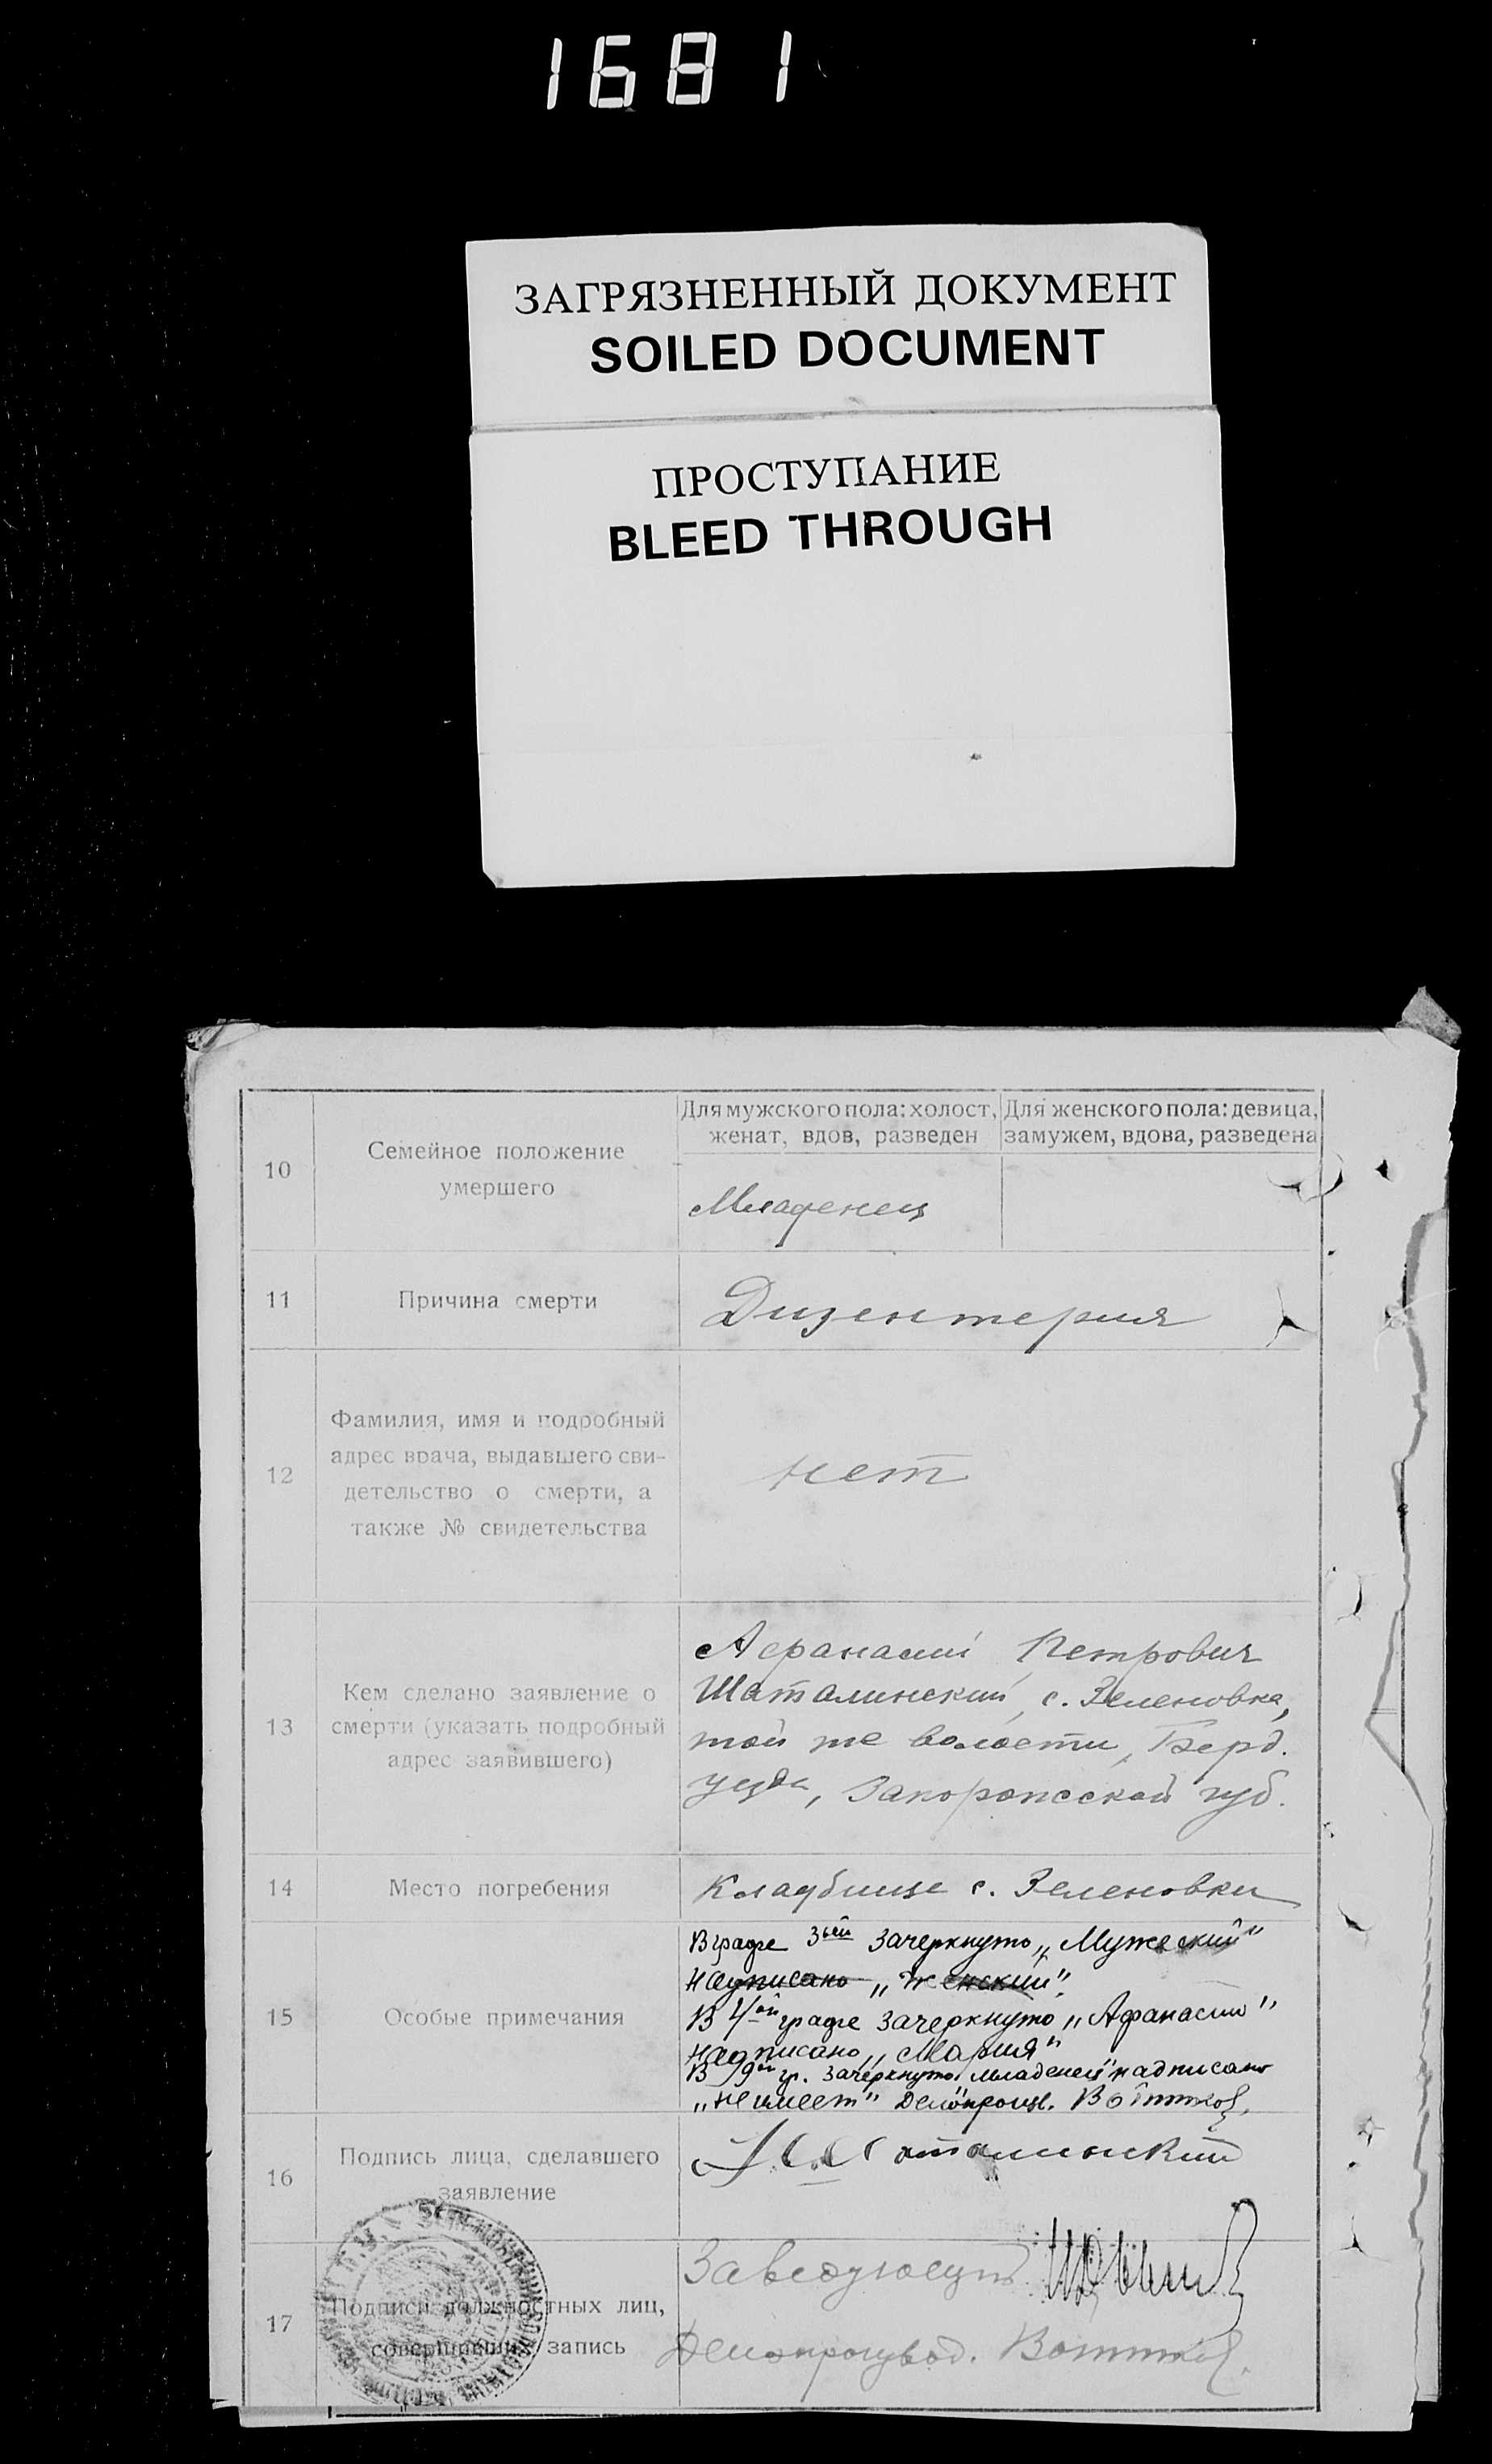 1681
ЗАГРЯЗНЕННЫЙ ДОКУМЕНТ
SOILED DOCUMENT
ПРОСТУПАНИЕ
BLEED THROUGH
10
Семейное положение
умершего
Для мужского пола: холост,
женат, вдов, разведен
Для женского пола: девица,
замужем, вдова, разведена
Младенец
11
Причина смерти
Дизентерия
12
Фамилия, имя и подробный
адрес врача, выдавшего сви-
детельство о смерти, а
также № свидетельства
нет
13
Кем сделано заявление о
смерти (указать подробный
адрес заявившего)
Афанасий Петрович
Шаталинский, с. Зеленовка,
той же волости, Берд.
уезда, Запорожской губ.
14
Место погребения
Кладбище с. Зеленовки
15
Особые примечания
В графе 3ьей зачеркнуто „Мужеский"
надписано „Женский".
В 4ой графе зачеркнуто „Афанасий"
надписано „Мария"
В 9ой гр. зачеркнуто „младенец" надписано
„не имеет" Делопроизв.
16
Подпись лица, сделавшего
заявление
17
Подписи должностных лиц,
совершивших запись
Заведующий
Делопроизвод.